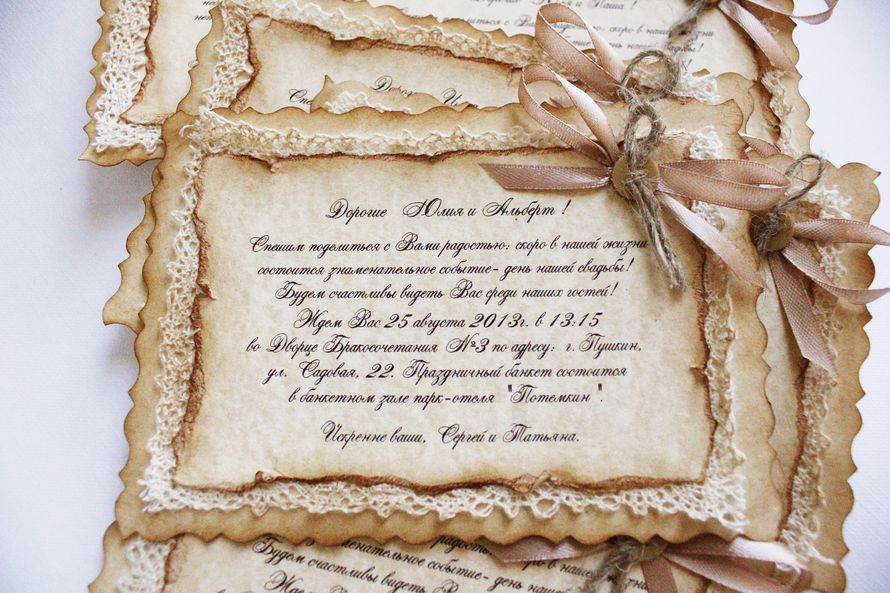 я и Паша !
Спешим поделиться с Вами радостью: скоро в нашей жизни
Дорогие Юлия и Альберт !
Спешим поделиться с Вами радостью: скоро в нашей жизни
состоится знаменательное событие- день нашей свадьбы!
Будем счастливы видеть Вас среди наших гостей!
Ждем Вас 25 августа 2013г. в 13.15
во Дворце Бракосочетания №3 по адресу: г. Пушкин,
ул. Садовая, 22. Праздничный банкет состоится
в банкетном зале парк-отеля "Потемкин".
Искренне ваши, Сергей и Татьяна.
радостью: скоро в нашей жизни
знаменательное событие- день нашей
Будем счастливы видеть Вас
Ждем Вас